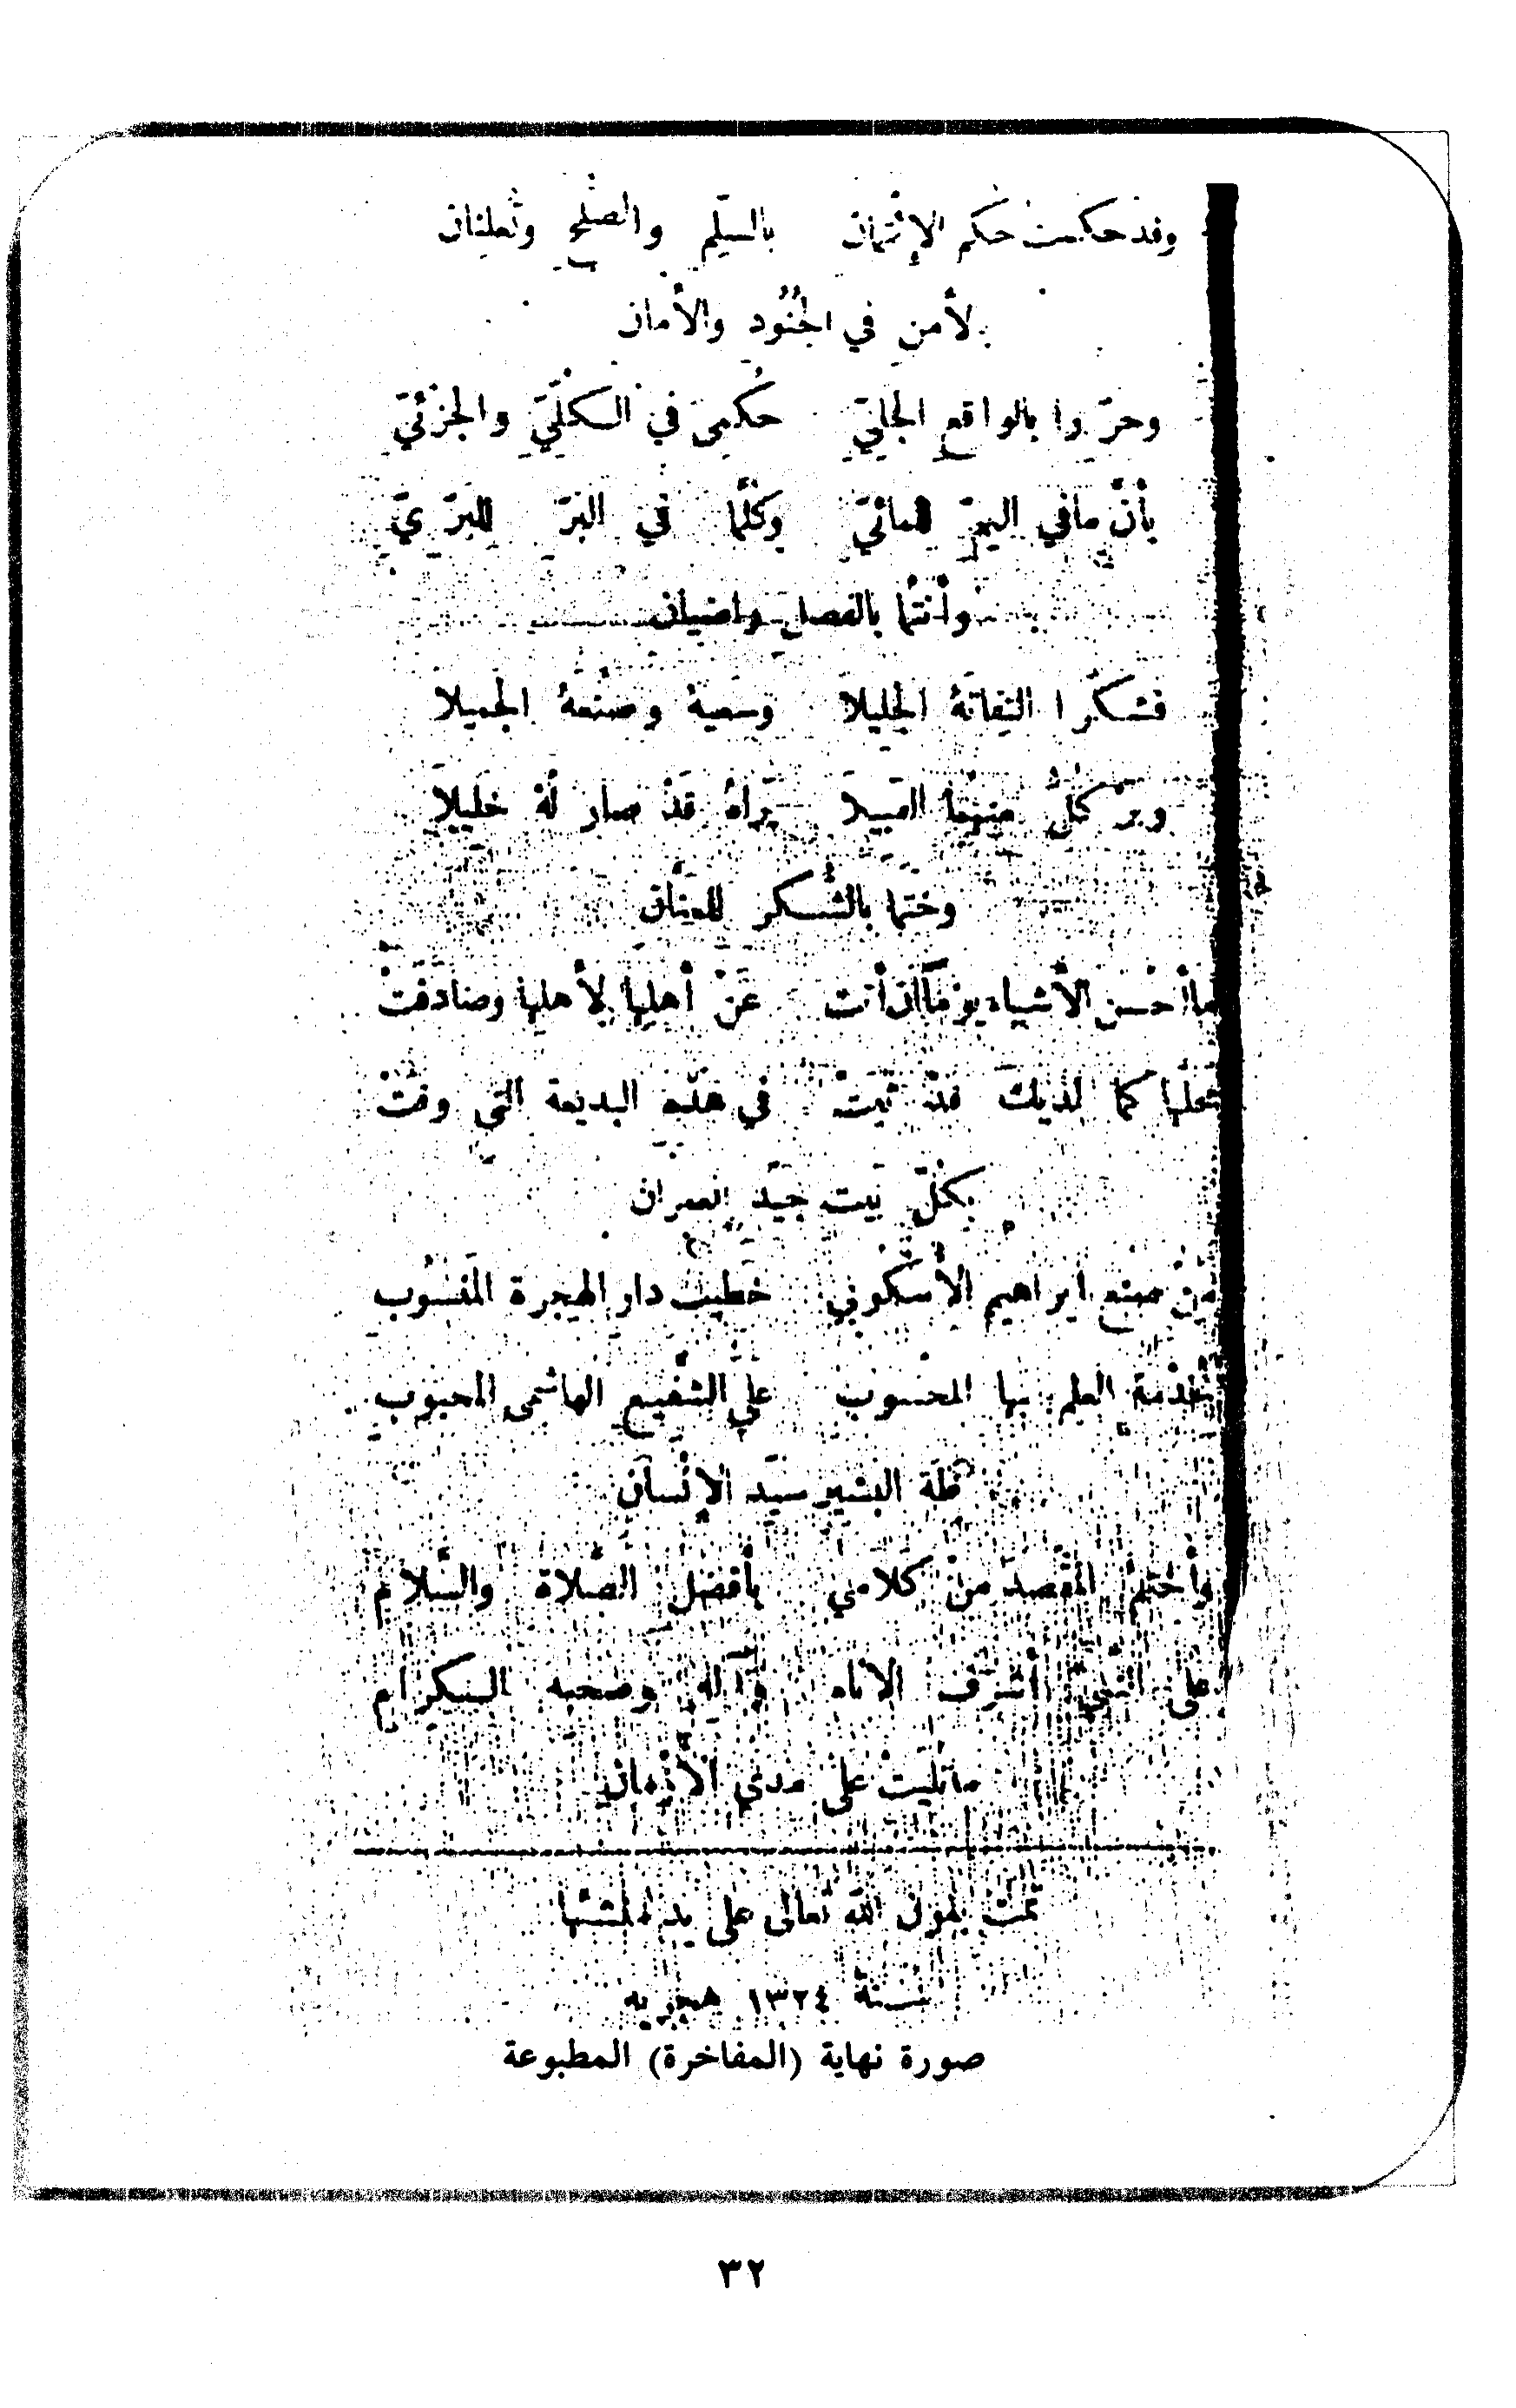 وقد حكمت حكم الإئتمان بالسّلم والصّلح وتعلنان
لأمن في الجُنُود والأمان
وحرّروا بالواقع الجليّ حُكمى في الكلّيّ والجزئيّ
بأنّ مافي اليمّ للمائيّ وكلّما في البرّ للبرّيّ
وأنتما بالفصل راضيان
فشكرا التفاتهُ الجليلا وسعيهُ وصنعهُ الجميلا
كلّ منهما السبيلا يراهُ قدْ صار لهُ خليلا
وختما بالشّكر للمنّان
ماأحْسن الأشياء يوْماً ان أتت عنْ أهلها لأهلها وصادفتْ
محلّها كما لديك قدْ ثبتْ في هذه البديعة التى وفتْ
بكلّ بيت جيّد العمران
منْ صنع ابراهيم الأسْكوبي خطيب دار الهجرة المنسُوب
لخدْمة العلم بها المحْسُوب على الشّفيع الهاشمى المحبُوب
طه البشير سيّد الإنْسان
وأختمُ المقْصد منْ كلامي بأفضل الصّلاة والسّلام
على النّبيّ أشرف الانام وآله وصحبه الكرام
ماتُليتْ على مدى الأزْمان
تمّت بعون الله تعالى على يد منشئها
سنة ١٣٢٤ هجريه
صورة نهاية (المفاخرة) المطبوعة
٣٢